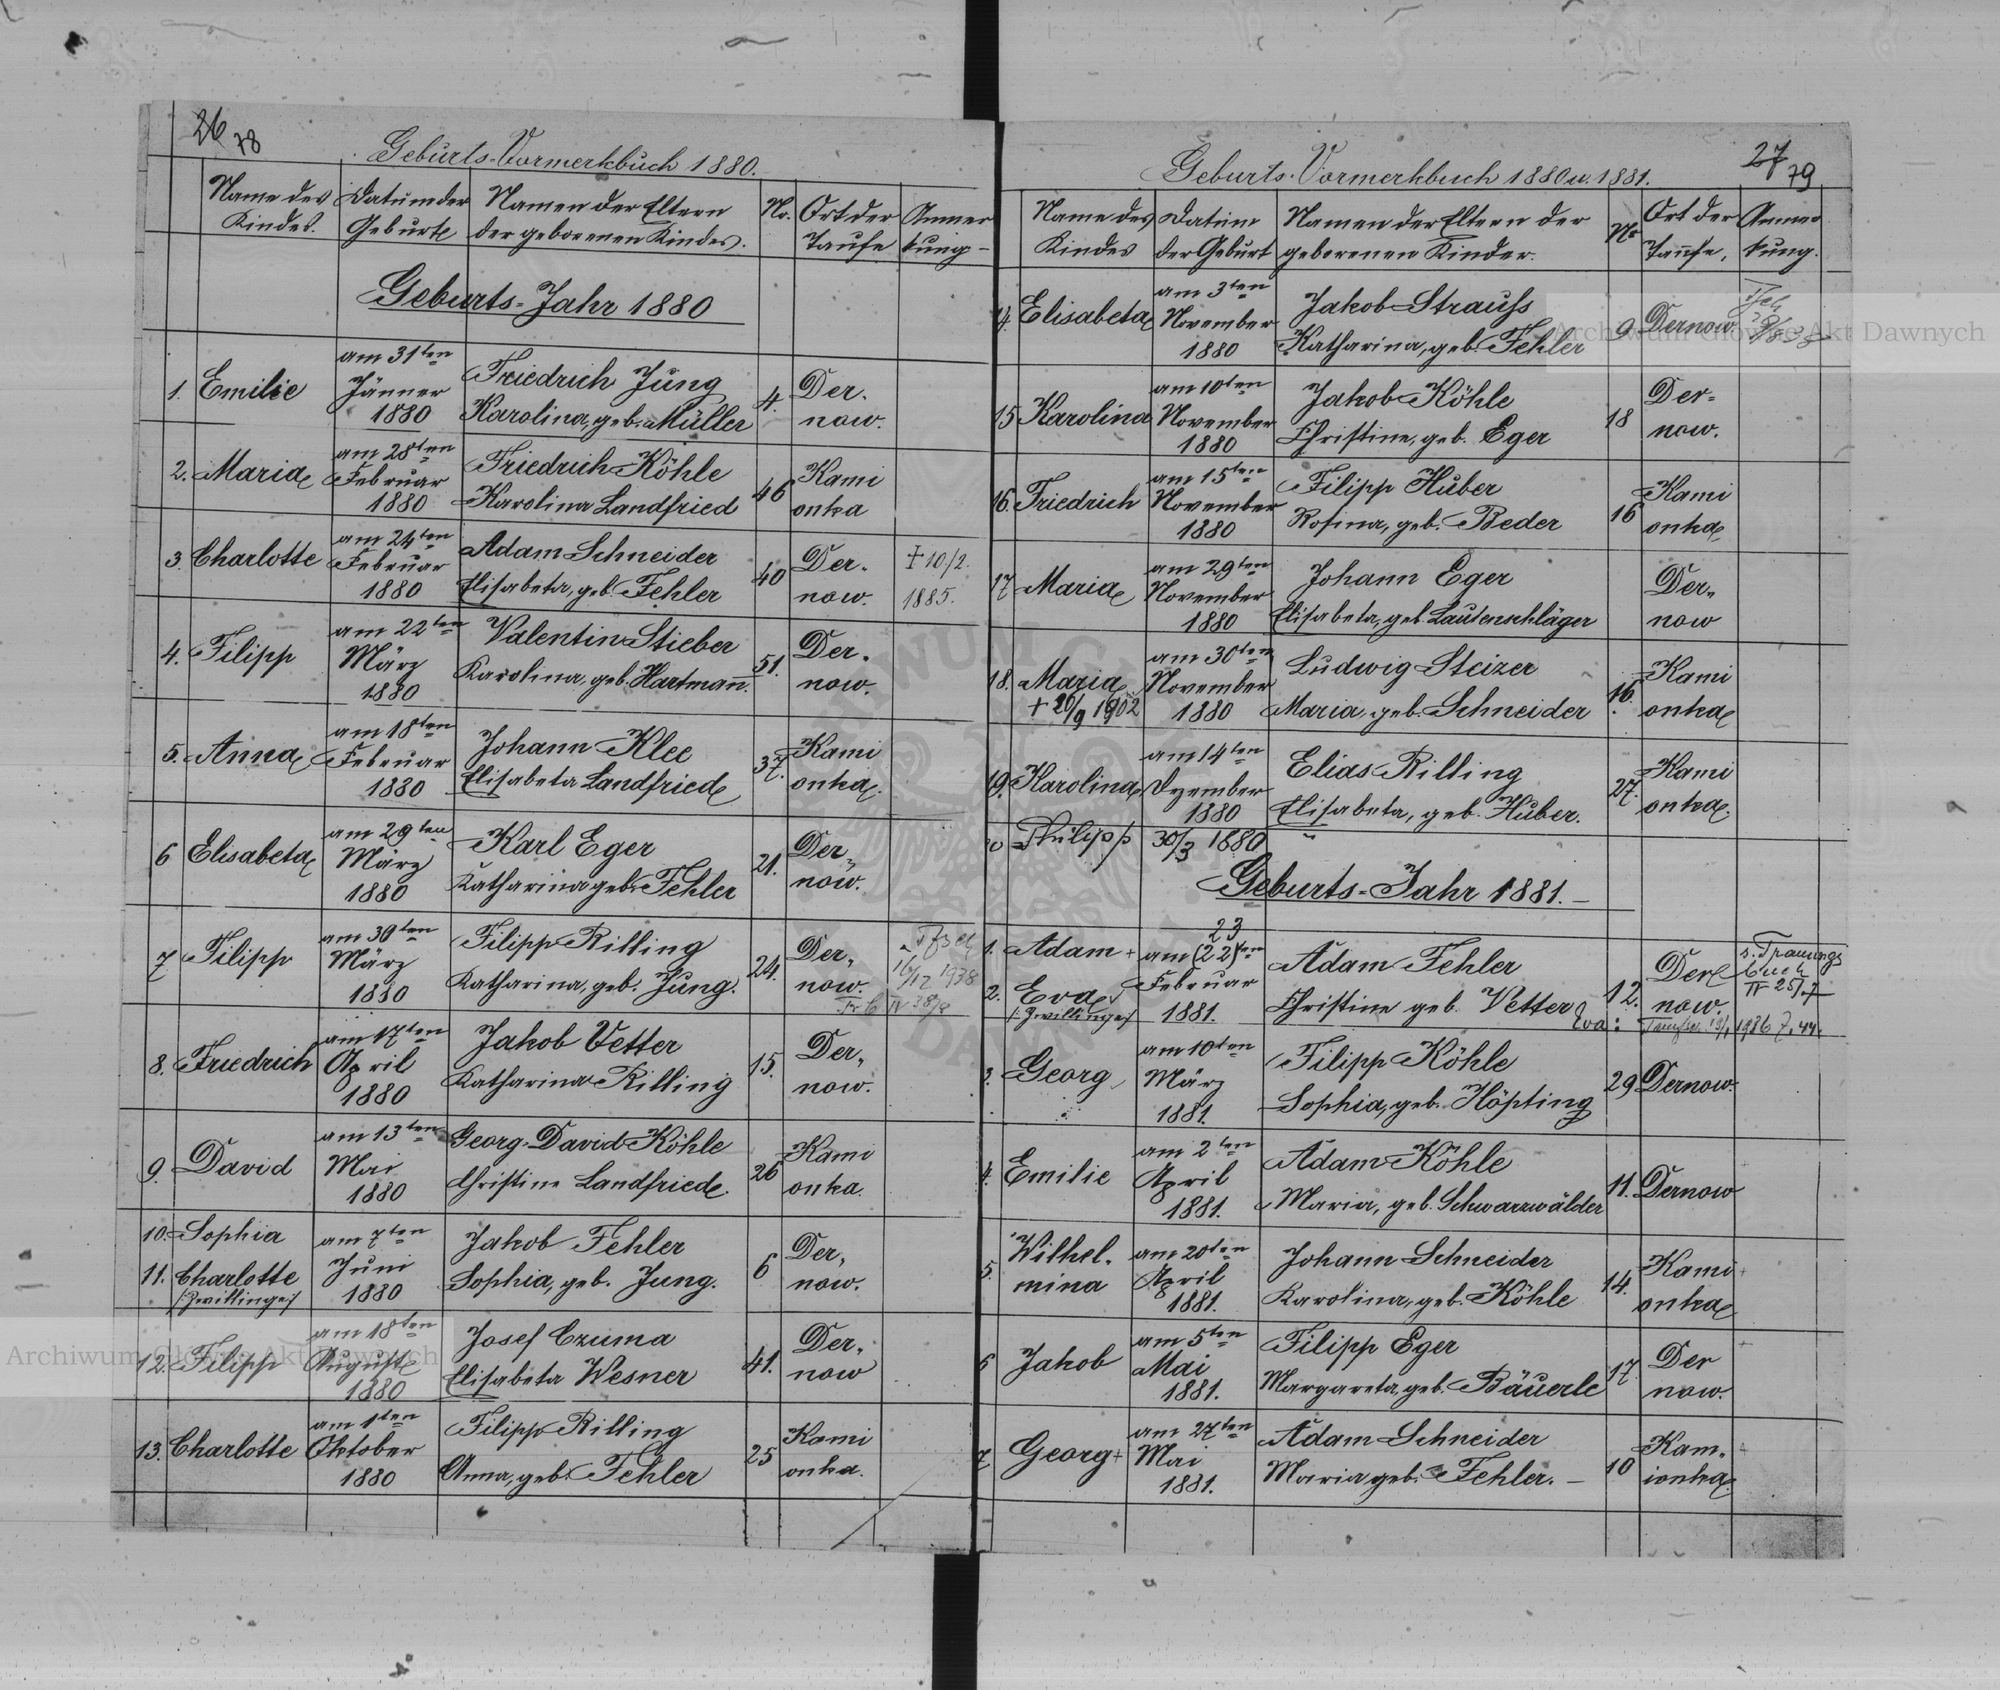 26
78
Geburts-Vormerkbuch 1880.
Name des Kindes.
Datum der Geburt
Namen der Eltern der geborenen Kindes.
Nr.
Ort der Taufe
Anmerkung-
Geburts-Jahr 1880
1. Emilie
am 31ten Jänner 1880
Friedrich Jung
Karolina, geb. Müller
4.
Dernow.
2. Maria
am 28ten Februar 1880
Friedrich Köhle
Karolina Landfried
46
Kamionka
3. Charlotte
am 24ten Februar 1880
Adam Schneider
Elisabeta, geb. Fehler
40
Dernow.
+ 10/2. 1885.
4. Filipp
am 22ten März 1880
Valentin Stieber
Karolina, geb. Hartmann.
51.
Dernow.
5. Anna
am 18ten Februar 1880
Johann Klee
Elisabeta Landfried
37.
Kamionka.
6 Elisabeta
am 29ten März 1880
Karl Eger
Katharina geb. Fehler
21.
Dernow.
7 Filipp
am 30ten März 1880
Filipp Rilling
Katharina, geb. Jung.
24.
Dernow.
16/12 1938
8. Friedrich
am 17ten April 1880
Jakob Vetter
Katharina Rilling
15.
Dernow.
9. David
am 13ten Mai 1880
Georg David Köhle
Christine Landfried.
26
Kamionka.
10. Sophia
11. Charlotte
/:Zwillinge:/
am 7ten Juni 1880
Jakob Fehler
Sophia, geb. Jung.
6
Dernow.
12. Filipp
am 18ten August 1880
Josef Czuma
Elisabeta Wesner
41.
Dernow
13. Charlotte
am 1ten Oktober 1880
Filipp Rilling
Anna, geb. Fehler
25
Kamionka.
27
79
Geburts-Vormerkbuch 1880 u. 1881.
Name des Kindes
Datum der Geburt
Namen der Eltern der geborenen Kinder.
Nr
Ort der Taufe,
Anmerkung.
14. Elisabeta
am 3ten November 1880
Jakob Strauss
Katharina, geb. Fehler
9
Dernow
15 Karolina
am 10ten November 1880
Jakob Köhle
Christine, geb. Eger
18
Dernow.
16. Friedrich
am 15ten November 1880
Filipp Huber
Rosina, geb. Beder
16
Kamionka
17 Maria
am 29ten November 1880
Johann Eger
Elisabeta, geb. Lautenschläger
Dernow
18. Maria
+ 20/9 1902
am 30ten November 1880
Ludwig Steizer
Maria, geb. Schneider
16.
Kamionka
19. Karolina
am 14ten Dezember 1880
Elias Rilling
Elisabeta, geb. Huber.
27.
Kamionka.
Philipp
30/3 1880
Geburts-Jahr 1881.-
1. Adam +
2. Eva
/:Zwillinge:/
23
am (22)ten Februar 1881.
Adam Fehler
Christine geb. Vetter
12.
Dernow.
s. Trauungsbuch
Eva:
3. Georg
am 10ten März 1881.
Filipp Köhle
Sophia, geb. Höpting
29
Dernow.
4. Emilie
am 2ten April 1881.
Adam Köhle
Maria, geb. Schwarzwälder
11.
Dernow
5. Wilhelmina
am 20ten April 1881.
Johann Schneider
Karolina, geb. Köhle
14.
Kamionka
6 Jakob
am 5ten Mai 1881.
Filipp Eger
Margareta, geb. Bäuerle
17.
Dernow.
7 Georg +
am 27ten Mai 1881.
Adam Schneider
Maria geb. Fehler.-
10
Kamionka.
Archiwum Główne Akt Dawnych
Archiwum Główne Akt Dawnych